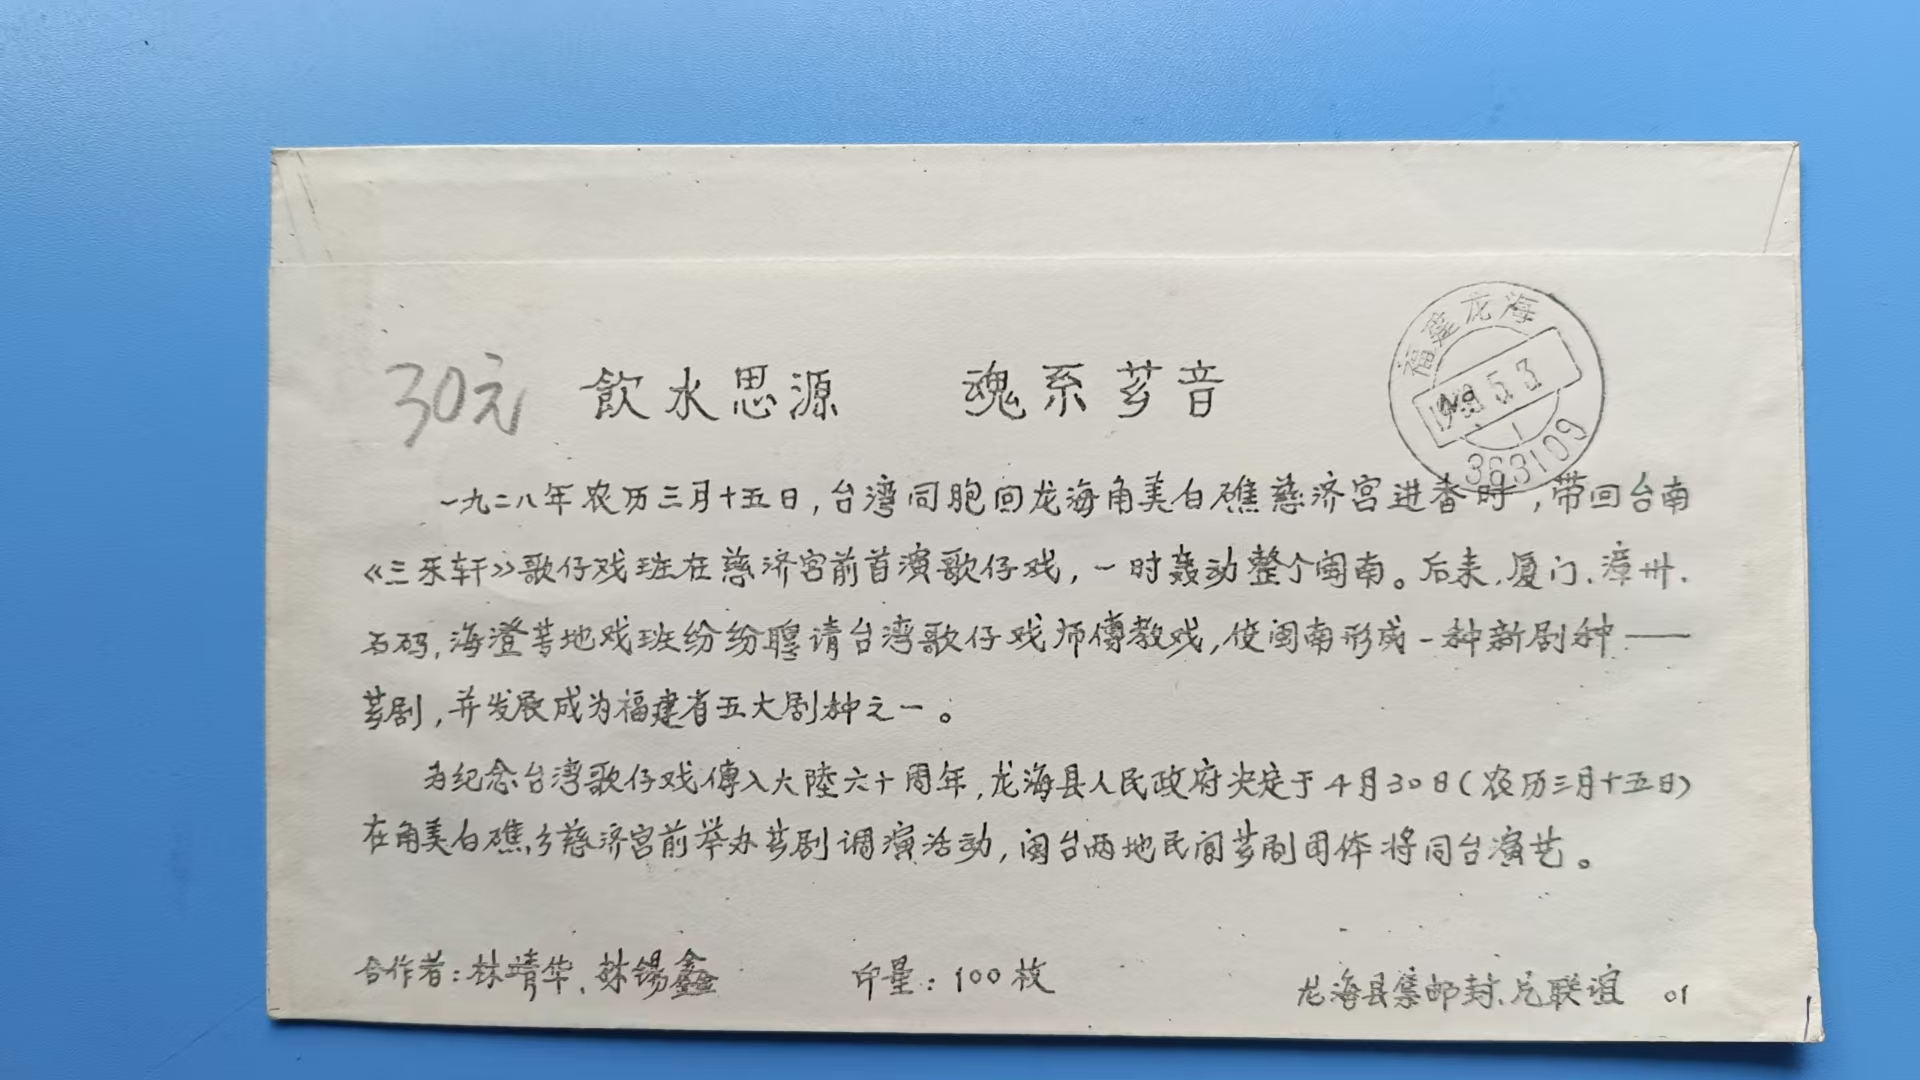 福建龙海
1988.5.3
1
363109
30元
飲水思源 魂系芗音
一九二八年农历三月十五日,台湾同胞回龙海角美白礁慈济宫进香时,带回台南
《三乐轩》歌仔戏班在慈济宫前首演歌仔戏,一时轰动整个闽南。后来,厦门、漳州、
石码,海澄等地戏班纷纷聘请台湾歌仔戏师傅教戏,使闽南形成一种新剧种——
芗剧,并发展成为福建省五大剧种之一。
为纪念台湾歌仔戏傳入大陸六十周年,龙海县人民政府决定于4月30日(农历三月十五日)
在角美白礁乡慈济宫前举办芗剧调演活动,闽台两地民间芗剧团体将同台演艺。
合作者:林靖华、林锡鑫 印量:100枚 龙海县集邮封、片联谊 01